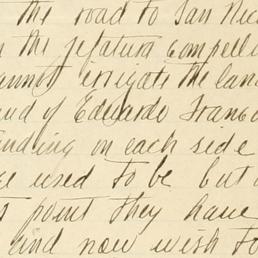 the road to San Nic
the jefatura compell
cannot irrigate the lan
and of Eduardo Franc
anding on each side
used to be but
point they have
and now wish to